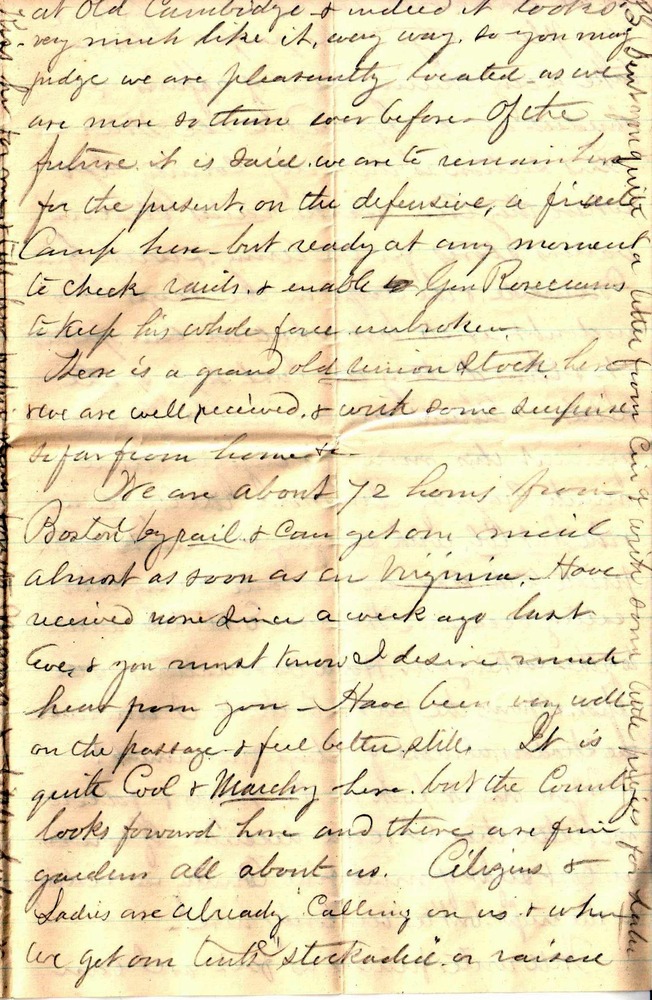 at Old Cambridge & indeed it looks
very much like it, every way. so you may
judge we are pleasantly located as we
are more so than ever before. Of the
future it is said we are to remain here
for the present, on the defensive, a fixed
Camp here but ready at any moment
to check raids. & enable Gen Rosecrans
to keep his whole force unbroken.
There is a grand old union stock here
& we are well received. & with some surprise
so far from home &c
We are about 72 hours from
Boston by rail. & can get our mail
almost as soon as in Virginia. Have
received none since a week ago last
Eve, & you must know I desire much
hear from you - Have been very well
on the passage & feel better still. It is
quite Cool & Marchy here. but the Country
looks forward here and there are fine
gardens all about us. Citizens &
Ladies are already calling on us & when
we get our tents "stockaded" or raised
a letter from & write some little for Lulu